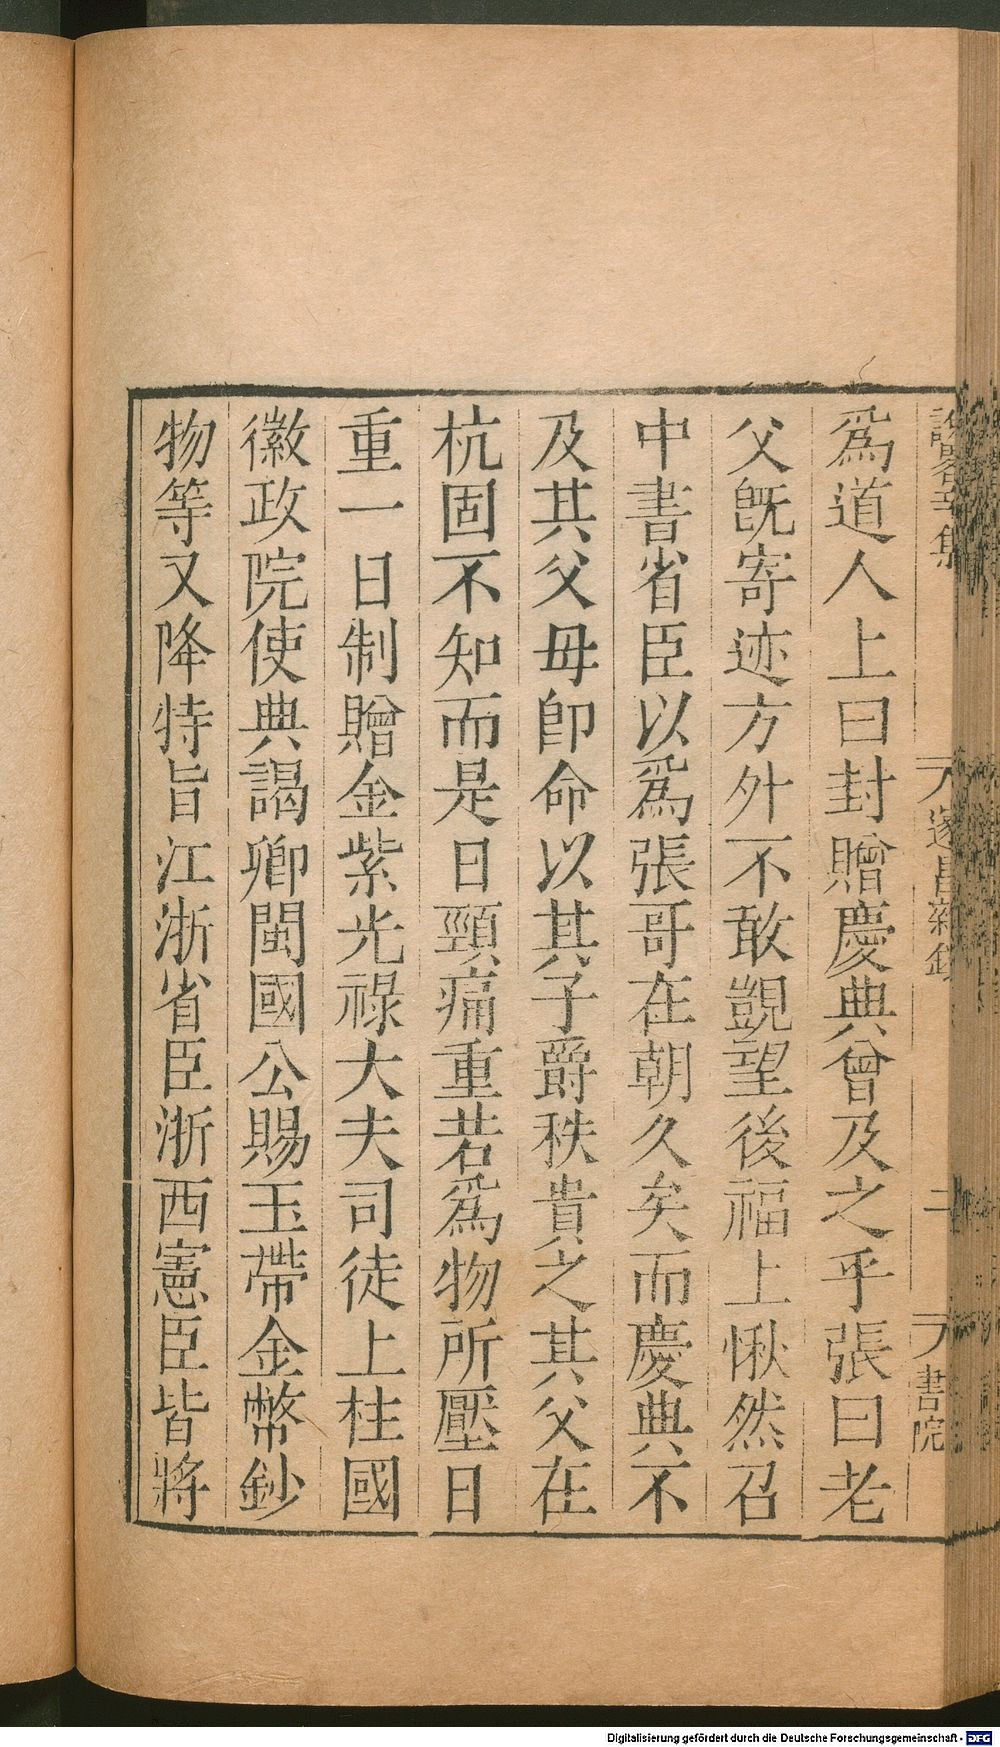 爲道人上曰封贈慶典曾及之乎張曰老
父旣寄迹方外不敢覬望後福上愀然召
中書省臣以爲張哥在朝久矣而慶典不
及其父母卽命以其子爵秩貴之其父在
杭固不知而是日頸痛重若爲物所壓日
重一日制贈金紫光祿大夫司徒上柱國
徽政院使典謁卿閩國公賜玉帶金幣鈔
物等又降特旨江浙省臣浙西憲臣皆將
遂昌雜錄
二
書院
Digitalisierung gefördert durch die Deutsche Forschungsgemeinschaft - DFG